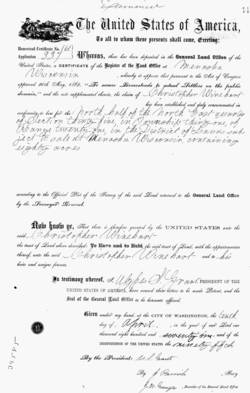 The United States of America,
To all to whom these presents shall come, Greeting:
Homestead Certificate No.
Application 337
Whereas, there has been deposited in the General Land Office of the
United States, a CERTIFICATE of the Register of the Land Office at Menasha
Wisconsin, whereby it appears that pursuant to the Act of Congress
approved 20th May, 1862, "To secure Homesteads to actual Settlers on the public
domain," and the acts supplemental thereto, the claim of Christopher Winehart
has been established and duly consummated in
conformity to law for the North half of the North East quarter
of Section thirty five, in Township thirty one, of
Range twenty one, in the District of Lands sub-
ject to sale at Menasha Wisconsin, containing
eighty acres
according to the Official Plat of the Survey of the said Land returned to the General Land Office
by the Surveyor General.
Now know ye, That there is therefore granted by the UNITED STATES unto the
said Christopher Winehart the
tract of Land above described: To Have and to Hold the said tract of Land, with the appurtenances
thereof, unto the said Christopher Winehart and to his
heirs and assigns forever.
In testimony whereof, I, Ulysses S. Grant, PRESIDENT OF THE
UNITED STATES OF AMERICA, have caused these letters to be made Patent, and the
Seal of the General Land Office to be hereunto affixed.
Given under my hand, at the CITY OF WASHINGTON, the tenth
day of April, in the year of our Lord one
thousand eight hundred and seventy one, and of the
INDEPENDENCE OF THE UNITED STATES the ninety fifth
By the President: U. S. Grant
By Secretary.
Recorder of the General Land Office.